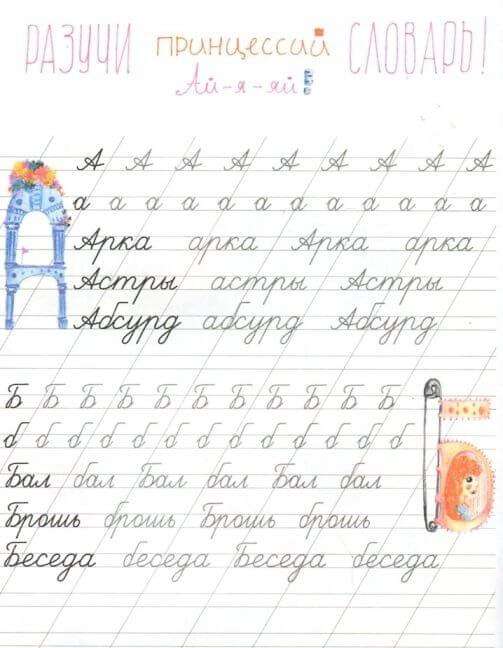 РАЗУЧИ ПРИНЦЕССИЙ СЛОВАРЬ!
Ай-я-яй!
А А А А А А А А А
а а а а а а а а а а а а
Арка арка Арка арка
Астры астры Астры
Абсурд абсурд Абсурд
Б Б Б Б Б Б Б Б Б Б Б
б б б б б б б б б б б б
Бал бал Бал бал Бал бал
Брошь брошь Брошь брошь
Беседа беседа Беседа беседа